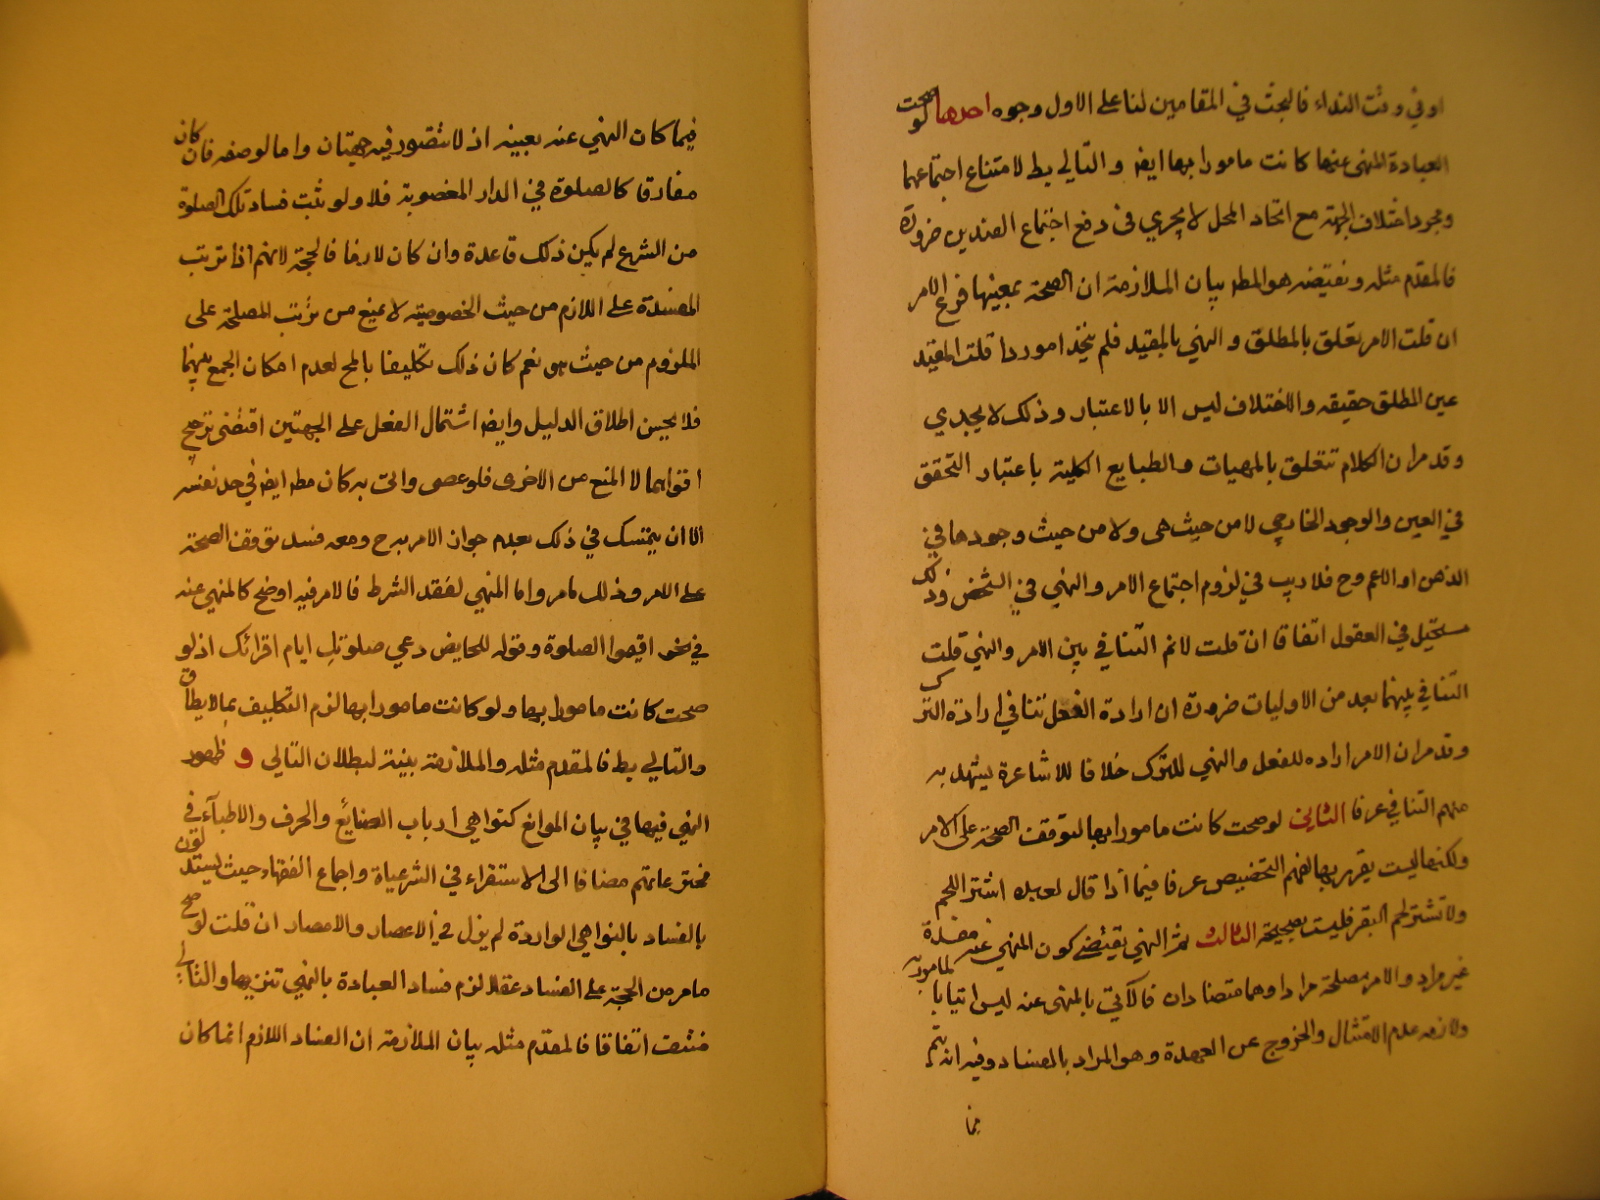 او في وقت النداء فالبحث في المقامين لنا على الاول وجوه احدها لو صحت
العبادة المنهى عنها كانت مامورا بها ايضا والتالي بط لامتناع اجتماعهما
ومجرد اختلاف الجهة مع اتحاد المحل لا يجري في دفع اجتماع الضدين ضرورة
فالمقدم مثله ونقيضه هو المط بيان الملازمة ان الصحة بمعنيها فرع الامر
ان قلت الامر تعلق بالمطلق والنهي بالمقيد فلم يتحد اموردا قلت المقيد
عين المطلق حقيقه والاختلاف ليس الا بالاعتبار وذلك لا يجدي
وقد مر ان الكلام تتعلق بالمهيات والطبايع الكلية باعتبار التحقق
في العين والوجود الخارجي لا من حيث هى ولا من حيث وجودها في
الذهن او الاعم وح فلا ريب في لزوم اجتماع الامر والنهي في الشخص وذلك
مستحيل في العقول اتفاقا ان قلت لانم التنافي بين الامر والنهي قلت
التنافي بينهما يعد من الاوليات ضرورة ان ارادة الفعل تنافي ارادة الترك
وقد مر ان الامر اراده للفعل والنهي للترك خلافا للاشاعرة يشهد به
منهم التنافي عرفا الثاني لو صحت كانت مامورا بها لتوقف الصحة على الامر
ولكنها ليست بقرربها لفهم التخصيص عرفا فيما اذا قال لعبده اشتر اللحم
ولا تشتر لحم البقر فليست بصحيحة الثالث ثم النهي يقتضي كون المنهي عنه مفسدة
غير مراد والامر مصلحة مرادا وهما متضادان فالآتي بالمنهى عنه ليس اتيانا بالمامور به
ولازمه عدم الامتثال والخروج عن العهدة وهو المراد بالفساد وفيه انه يتم
فيما
فيما كان النهي عنه بعينه اذ لا تتصور فيه جهتان واما لوصفه فان كان
مفارقا كالصلوة في الدار المغصوبة فلا ولو ثبت فساد تلك الصلوة
من الشرع لم يكن ذلك قاعدة وان كان لازما فالحجة لانهم اذا ترتب
المفسدة على اللازم من حيث الخصوصية لا يمنع من ترتب المصلحة على
الملزوم من حيث هو نعم كان ذلك تكليفا بالمح لعدم امكان الجمع بينهما
فلا يحسن اطلاق الدليل وايضا اشتمال الفعل على الجهتين اقتضى ترجيح
اقواهما لا المنع من الاخرى فلو عصى واتى به كان مط ايضا في حد نفسه
الا ان يتمسك في ذلك بعدم جواز الامر به ح ومعه فسد توقف الصحة
على الامر وذلك مامر واما المنهي لفقد الشرط فالامر فيه اوضح كالمنهي عنه
في نحو اقيموا الصلوة وقوله للحايض دعي صلوتك ايام اقرائك اذ لو
صحت كانت مامورا بها ولو كانت مامورا بها لزم التكليف بما لا يطاق
والتالي بط فالمقدم مثله والملازمة بينة لبطلان التالى و ظهور
النهي فيها في بيان الموانع كنواهي ارباب الصنايع والحرف والاطباء في
مخترعاتهم مضافا الى الاستقراء في الشرعياة واجماع الفقهاء حيث يستدلون
بالفساد بالنواهي الواردة لم يزل في الاعصار والامصار ان قلت لو صح
مامر من الحجة على الفساد عقلا لزم فساد العبادة بالنهي تنزيها والتالي
منتف اتفاقا فالمقدم مثله بيان الملازمة ان الفساد اللازم انما كان